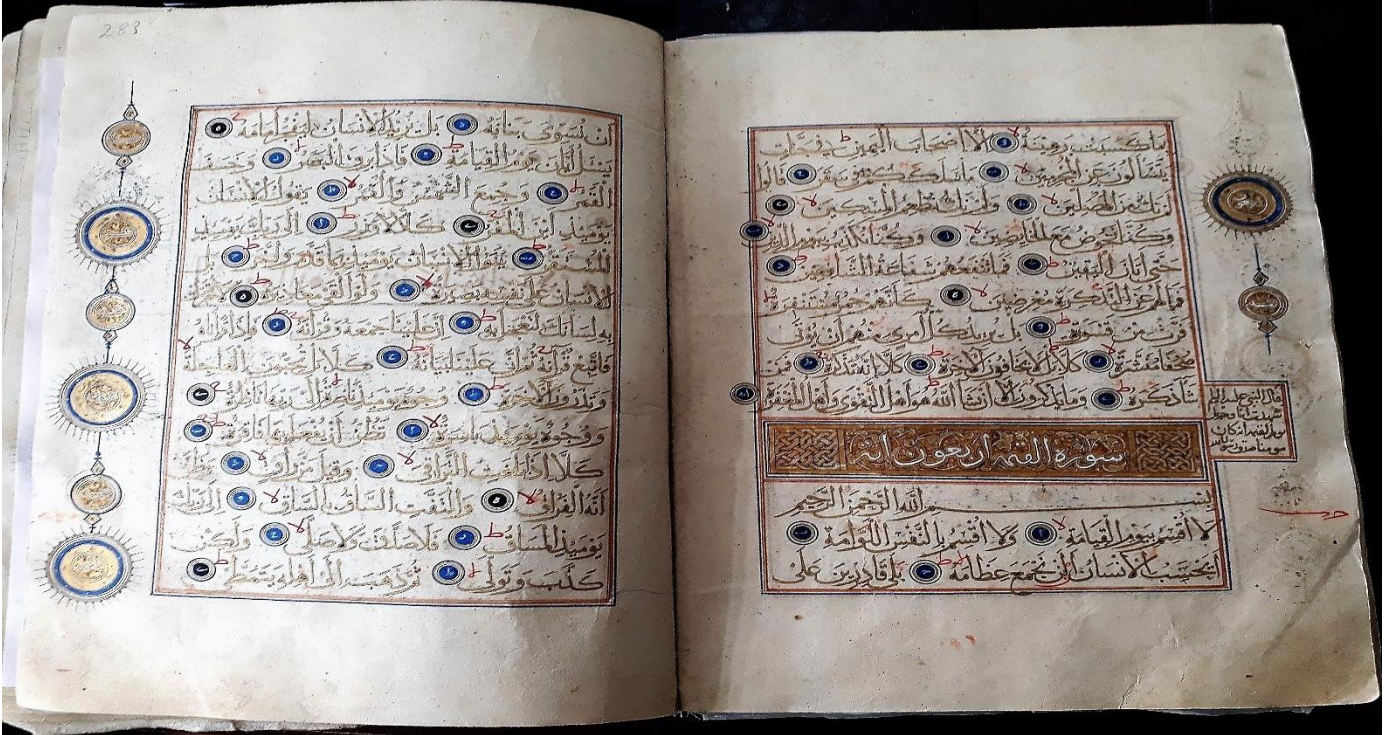 ما كسبت رهينة الا اصحاب اليمين في جنات
يتساءلون عن المجرمين ما سلككم في سقر قالوا
لم نك من المصلين ولم نك نطعم المسكين
وكنا نخوض مع الخائضين وكنا نكذب بيوم الدين
حتى اتانا اليقين فما تنفعهم شفاعة الشافعين
فما لهم عن التذكرة معرضين كانهم حمر مستنفرة
فرت من قسورة بل يريد كل امرئ منهم ان يؤتى
صحفا منشرة كلا بل لا يخافون الاخرة كلا انه تذكرة فمن
شاء ذكره وما يذكرون الا ان يشاء الله هو اهل التقوى واهل المغفرة
سورة القيمة اربعون اية
بسم الله الرحمن الرحيم
لا اقسم بيوم القيامة ولا اقسم بالنفس اللوامة
ايحسب الانسان الن نجمع عظامه بلى قادرين على
قال النبي
283
ان نسوي بنانه بل يريد الانسان ليفجر امامه
يسئل ايان يوم القيامة فاذا برق البصر وخسف
القمر وجمع الشمس والقمر يقول الانسان
يومئذ اين المفر كلا لا وزر الى ربك يومئذ
المستقر ينبؤ الانسان يومئذ بما قدم واخر بل
الانسان على نفسه بصيرة ولو القى معاذيره لا تحرك
به لسانك لتعجل به ان علينا جمعه وقرانه فاذا قراناه
فاتبع قرانه ثم ان علينا بيانه كلا بل تحبون العاجلة
وتذرون الاخرة وجوه يومئذ ناضرة الى ربها ناظرة
ووجوه يومئذ باسرة تظن ان يفعل بها فاقرة
كلا اذا بلغت التراقي وقيل من راق وظن
انه الفراق والتفت الساق بالساق الى ربك
يومئذ المساق فلا صدق ولا صلى ولكن
كذب وتولى ثم ذهب الى اهله يتمطى